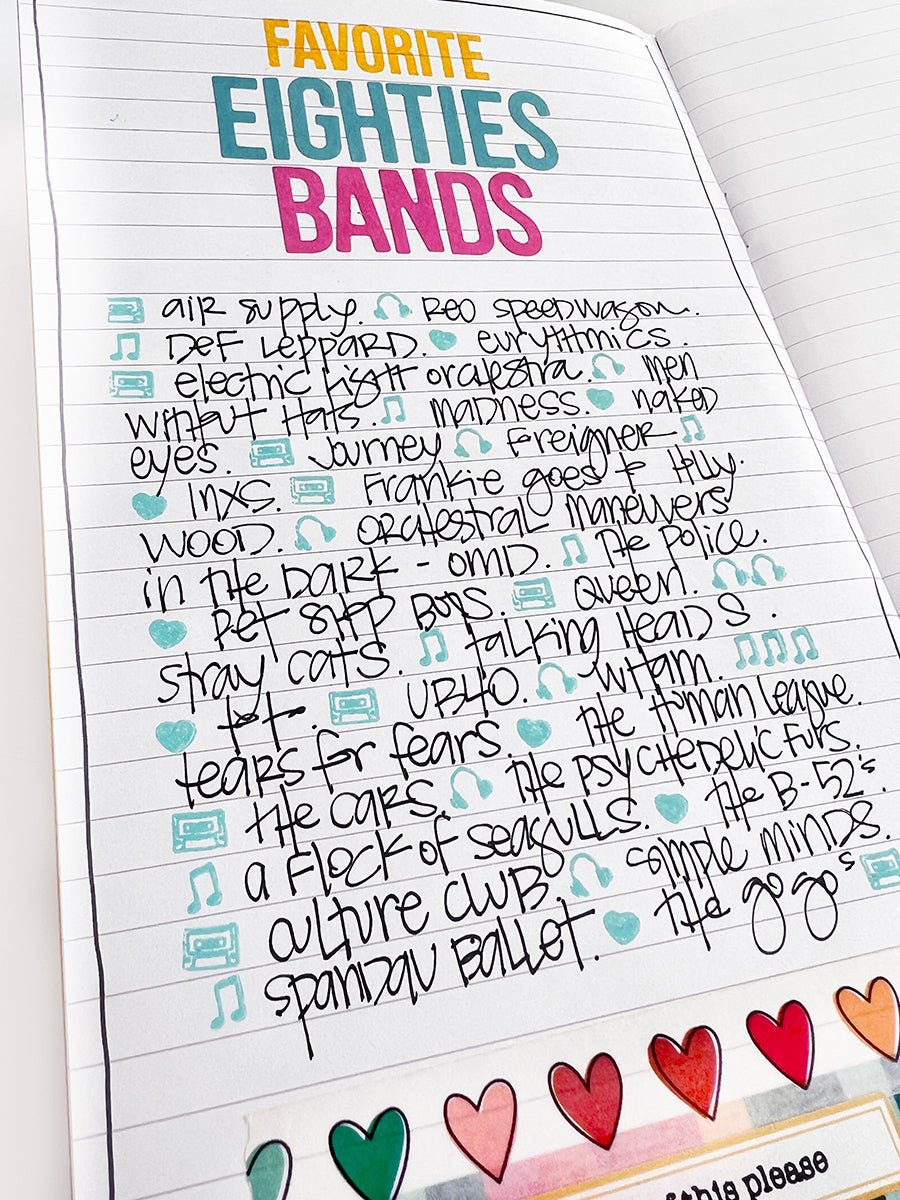 FAVORITE
EIGHTIES
BANDS
air supply. REO speedwagon.
Def Leppard. eurythmics.
electric light orchestra. men
without hats. madness. naked
eyes. Journey foreigner
inxs. Frankie goes to Holly-
wood. orchestral maneuvers
in the dark - OMD. the police.
pet shop boys. queen.
stray cats. talking heads.
toto. UB40. wham.
tears for fears. the human league.
the cars. the psychedelic furs.
a flock of seagulls. the B-52's.
culture club. simple minds.
spandau ballet. the go go's
this please